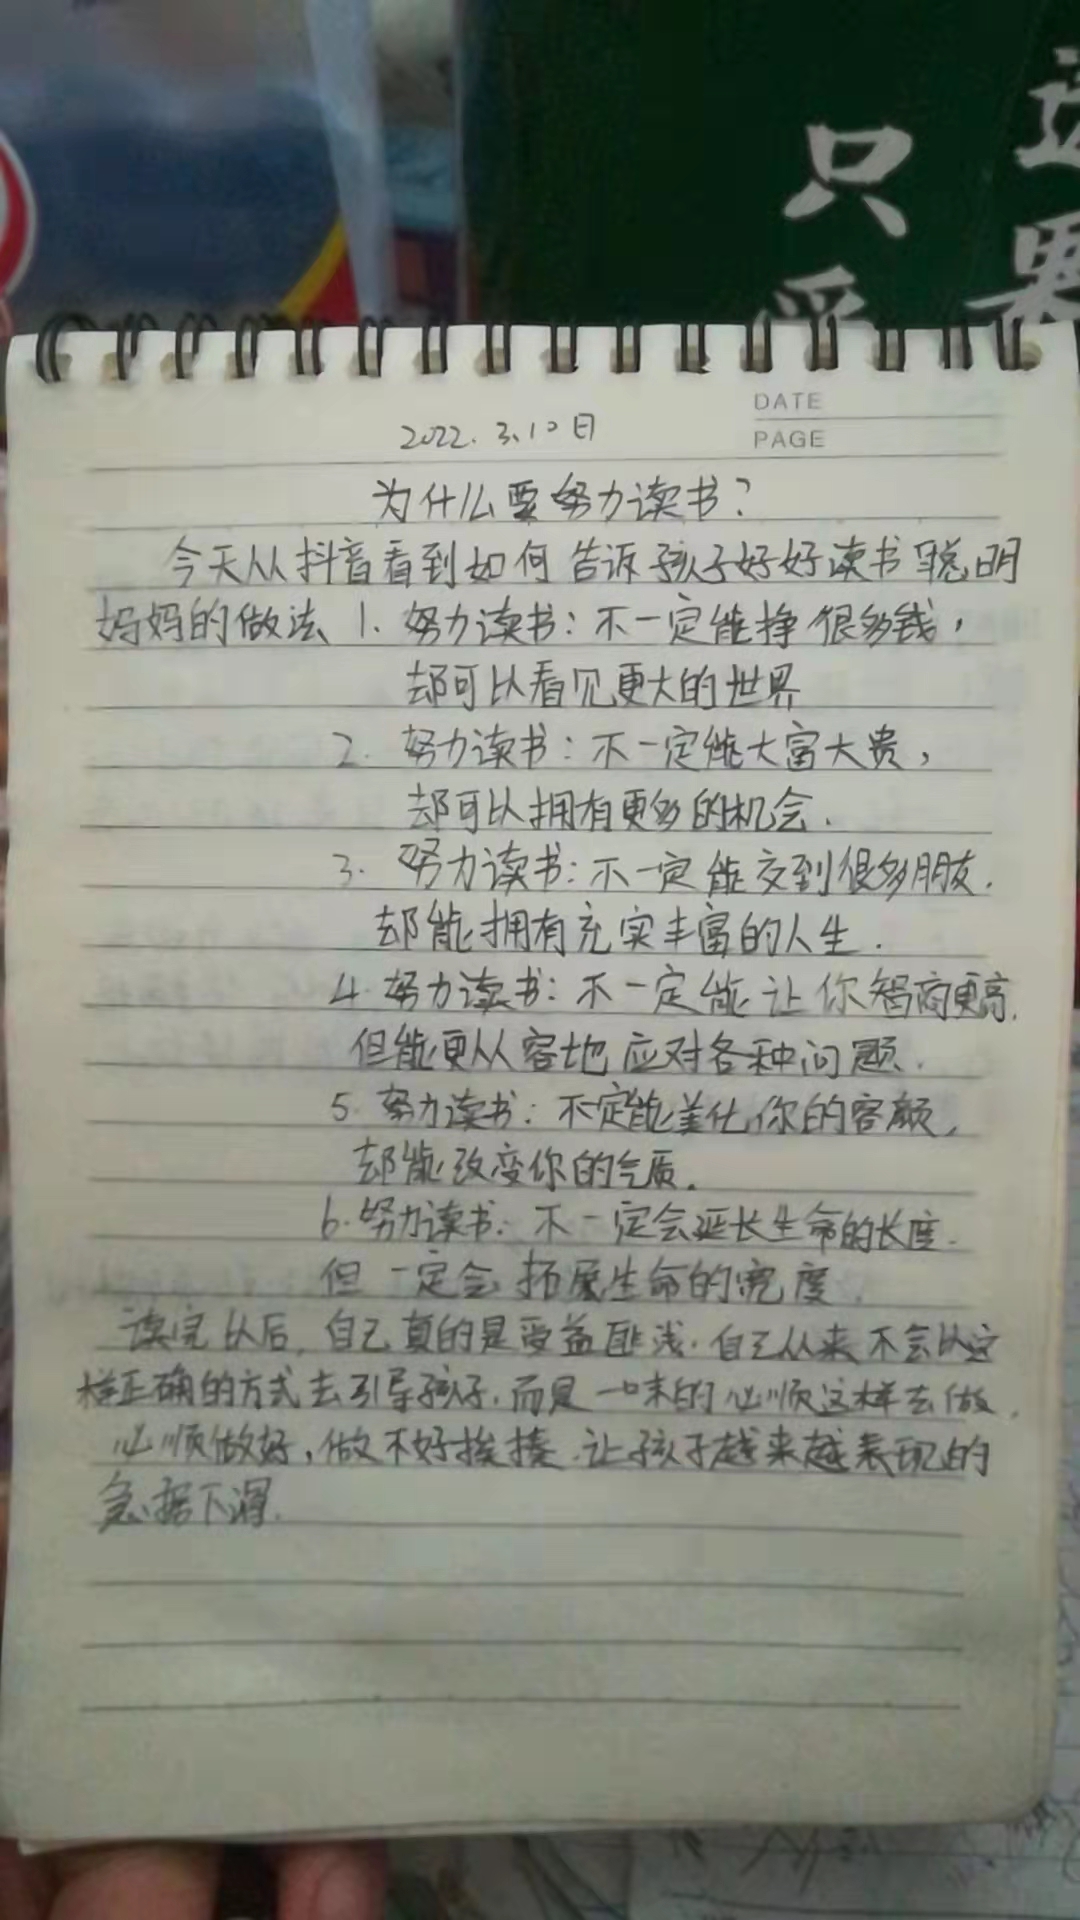 只
DATE
PAGE
2022.3.10日
为什么要努力读书?
今天从抖音看到如何告诉孩子好好读书聪明
妈妈的做法 1. 努力读书:不一定能挣很多钱,
却可以看见更大的世界
2. 努力读书:不一定能大富大贵,
却可以拥有更多的机会.
3. 努力读书:不一定能交到很多朋友.
却能拥有充实丰富的人生.
4. 努力读书:不一定能让你智商更高.
但能更从容地应对各种问题.
5. 努力读书:不定能美化你的容颜,
却能改变你的气质.
6. 努力读书:不一定会延长生命的长度.
但一定会拓展生命的宽度.
读完以后,自己真的是受益匪浅.自己从来不会以这
样正确的方式去引导孩子.而是一味的必顺这样去做.
必顺做好,做不好挨揍.让孩子越来越表现的
急据下滑.